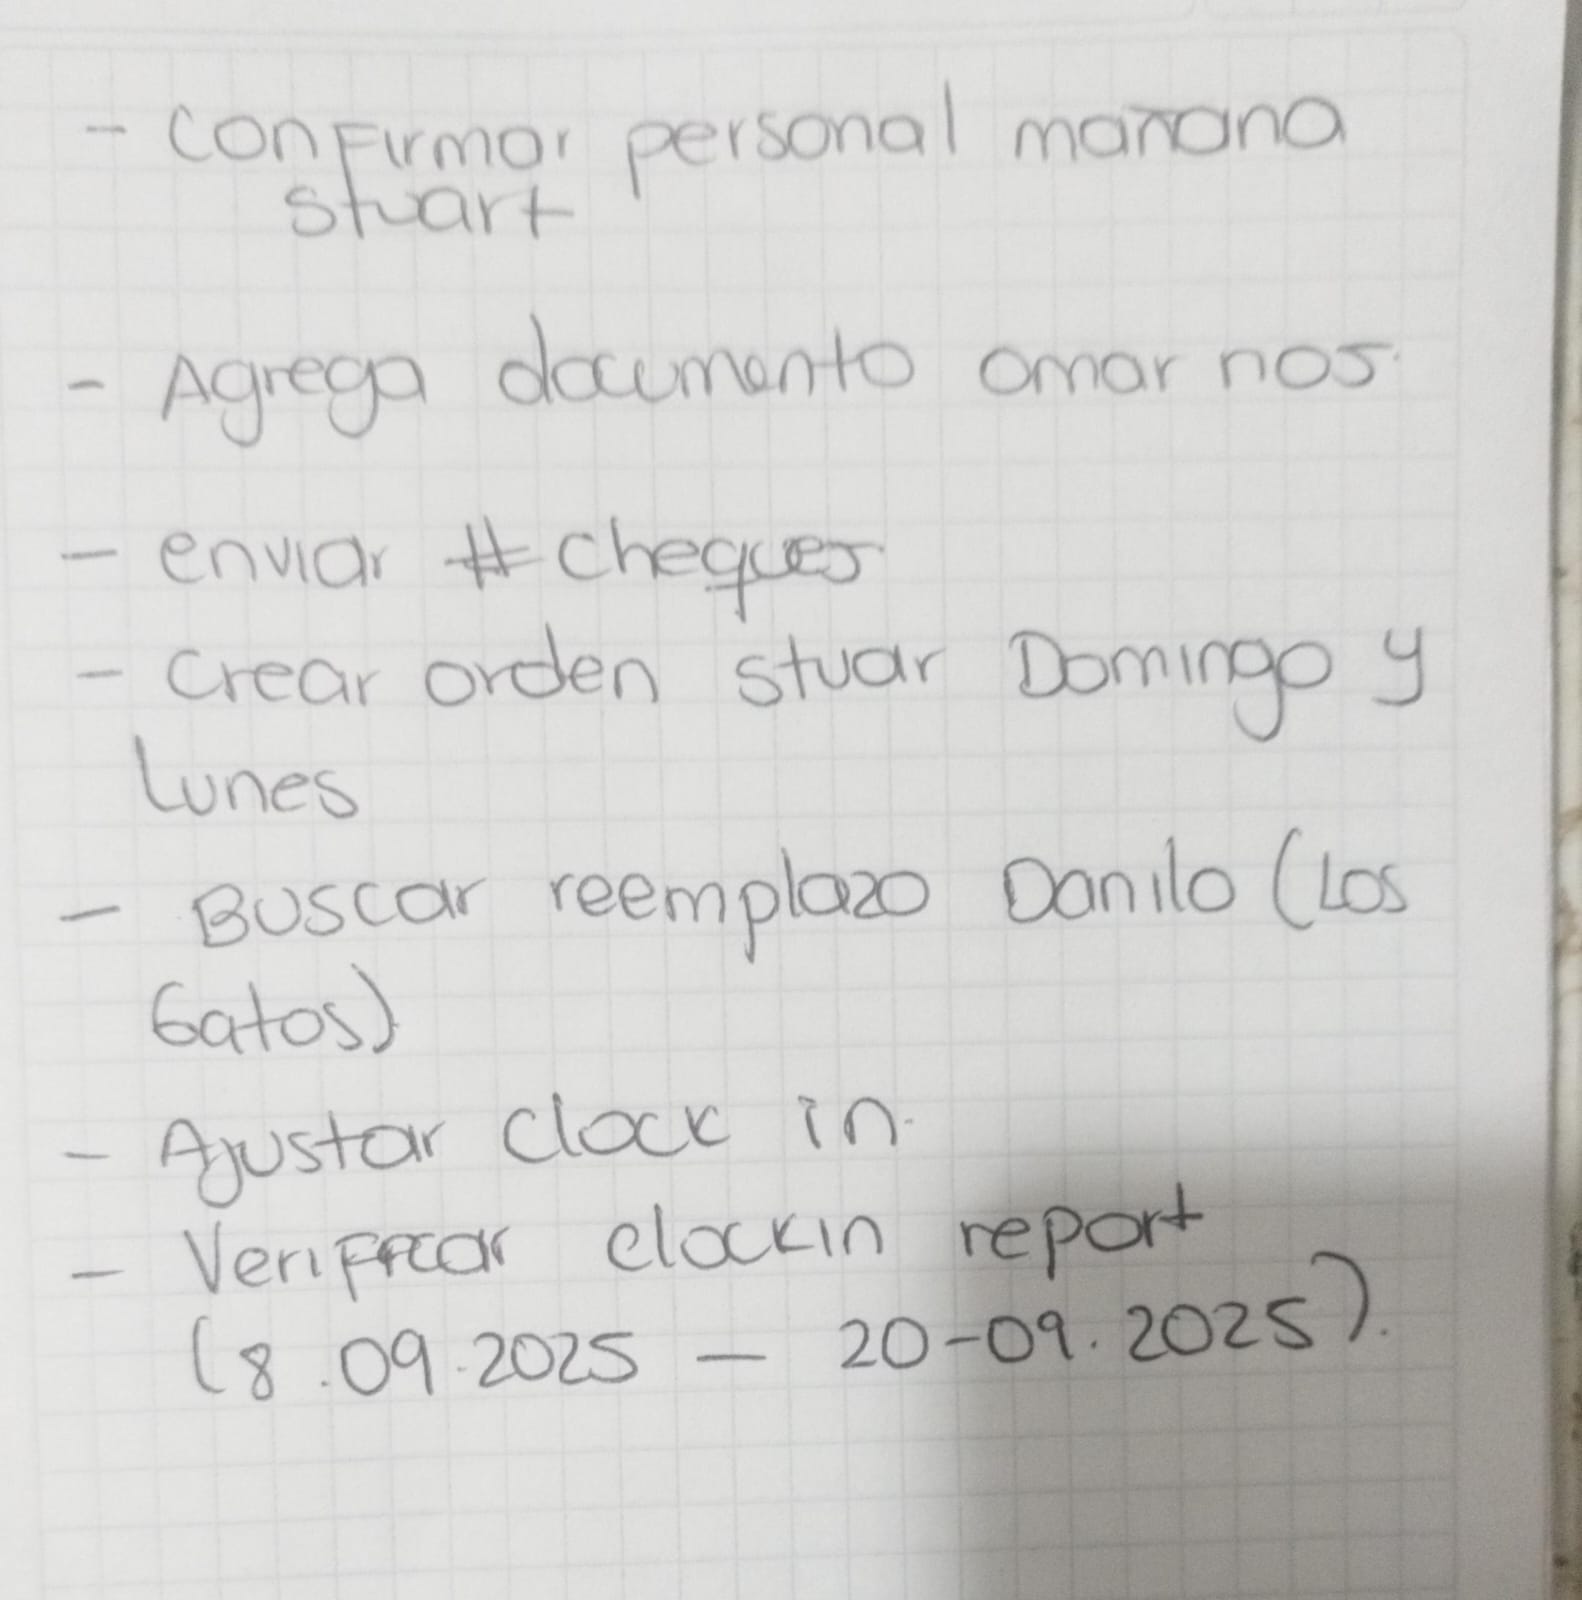 - Confirmar personal mañana
stuart
- Agrega documento omar nos.
- enviar # cheques
- Crear orden stuar Domingo y
Lunes
- Buscar reemplazo Danilo (Los
Gatos)
- Ajustar clock in.
- Verificar clockin report
(8.09.2025 - 20-09.2025).